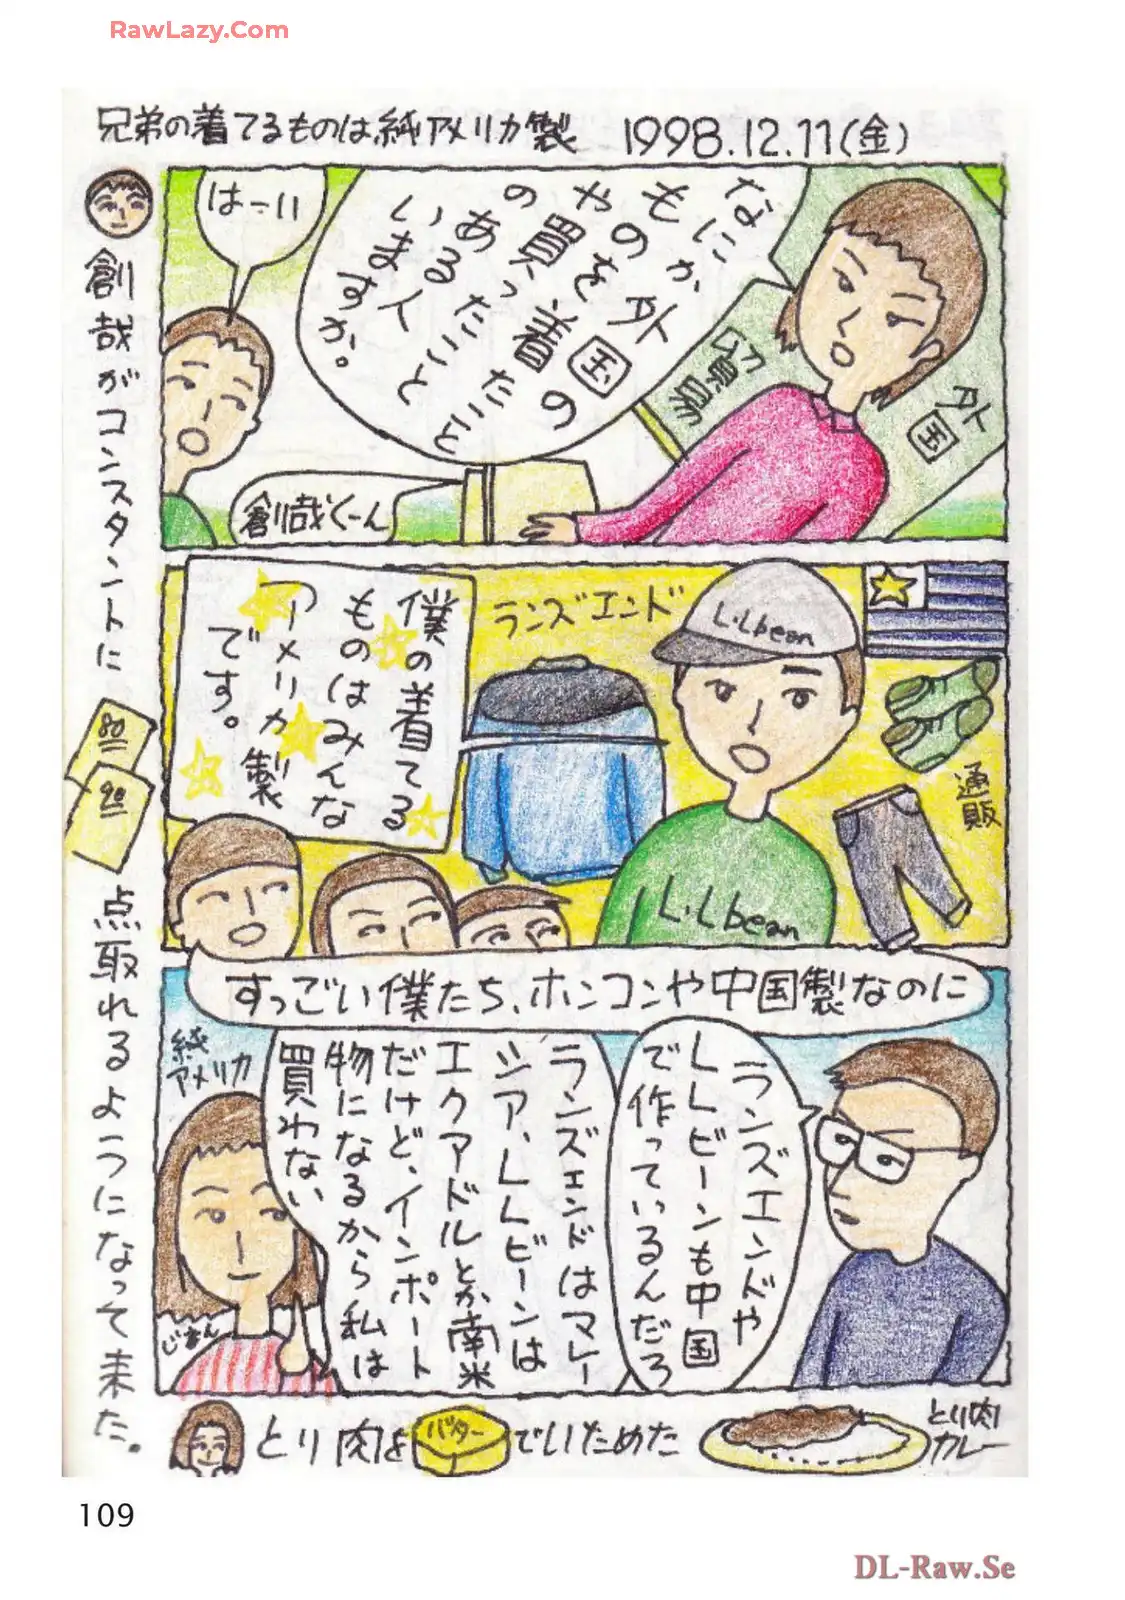 RawLazy.Com
兄弟の着てるものは純アメリカ製 1998.12.11(金)
なにか
ものか外国の
やのを着
の買ったこと
あったこと
あるひと
いま人
すか。
はーい
貿易
外国
創哉くーん
創哉がコンスタントに
80
90
点取れるようになって来た。
ランズエンド
L.Lbean
僕の着てる
ものはみんな
アーメリカ製
です。
通販
L.Lbean
すっごい僕たち、ホンコンや中国製なのに
ランズエンドや
LLビーンも中国
で作っているんだろ
ランズエンドはマレー
シア、LLビーンは
エクアドルとか南米
だけど、インポート
物になるから私は
買わない
純
アメリカ
じまん
とり肉をバターでいためた
とり肉
カレー
109
DL-Raw.Se